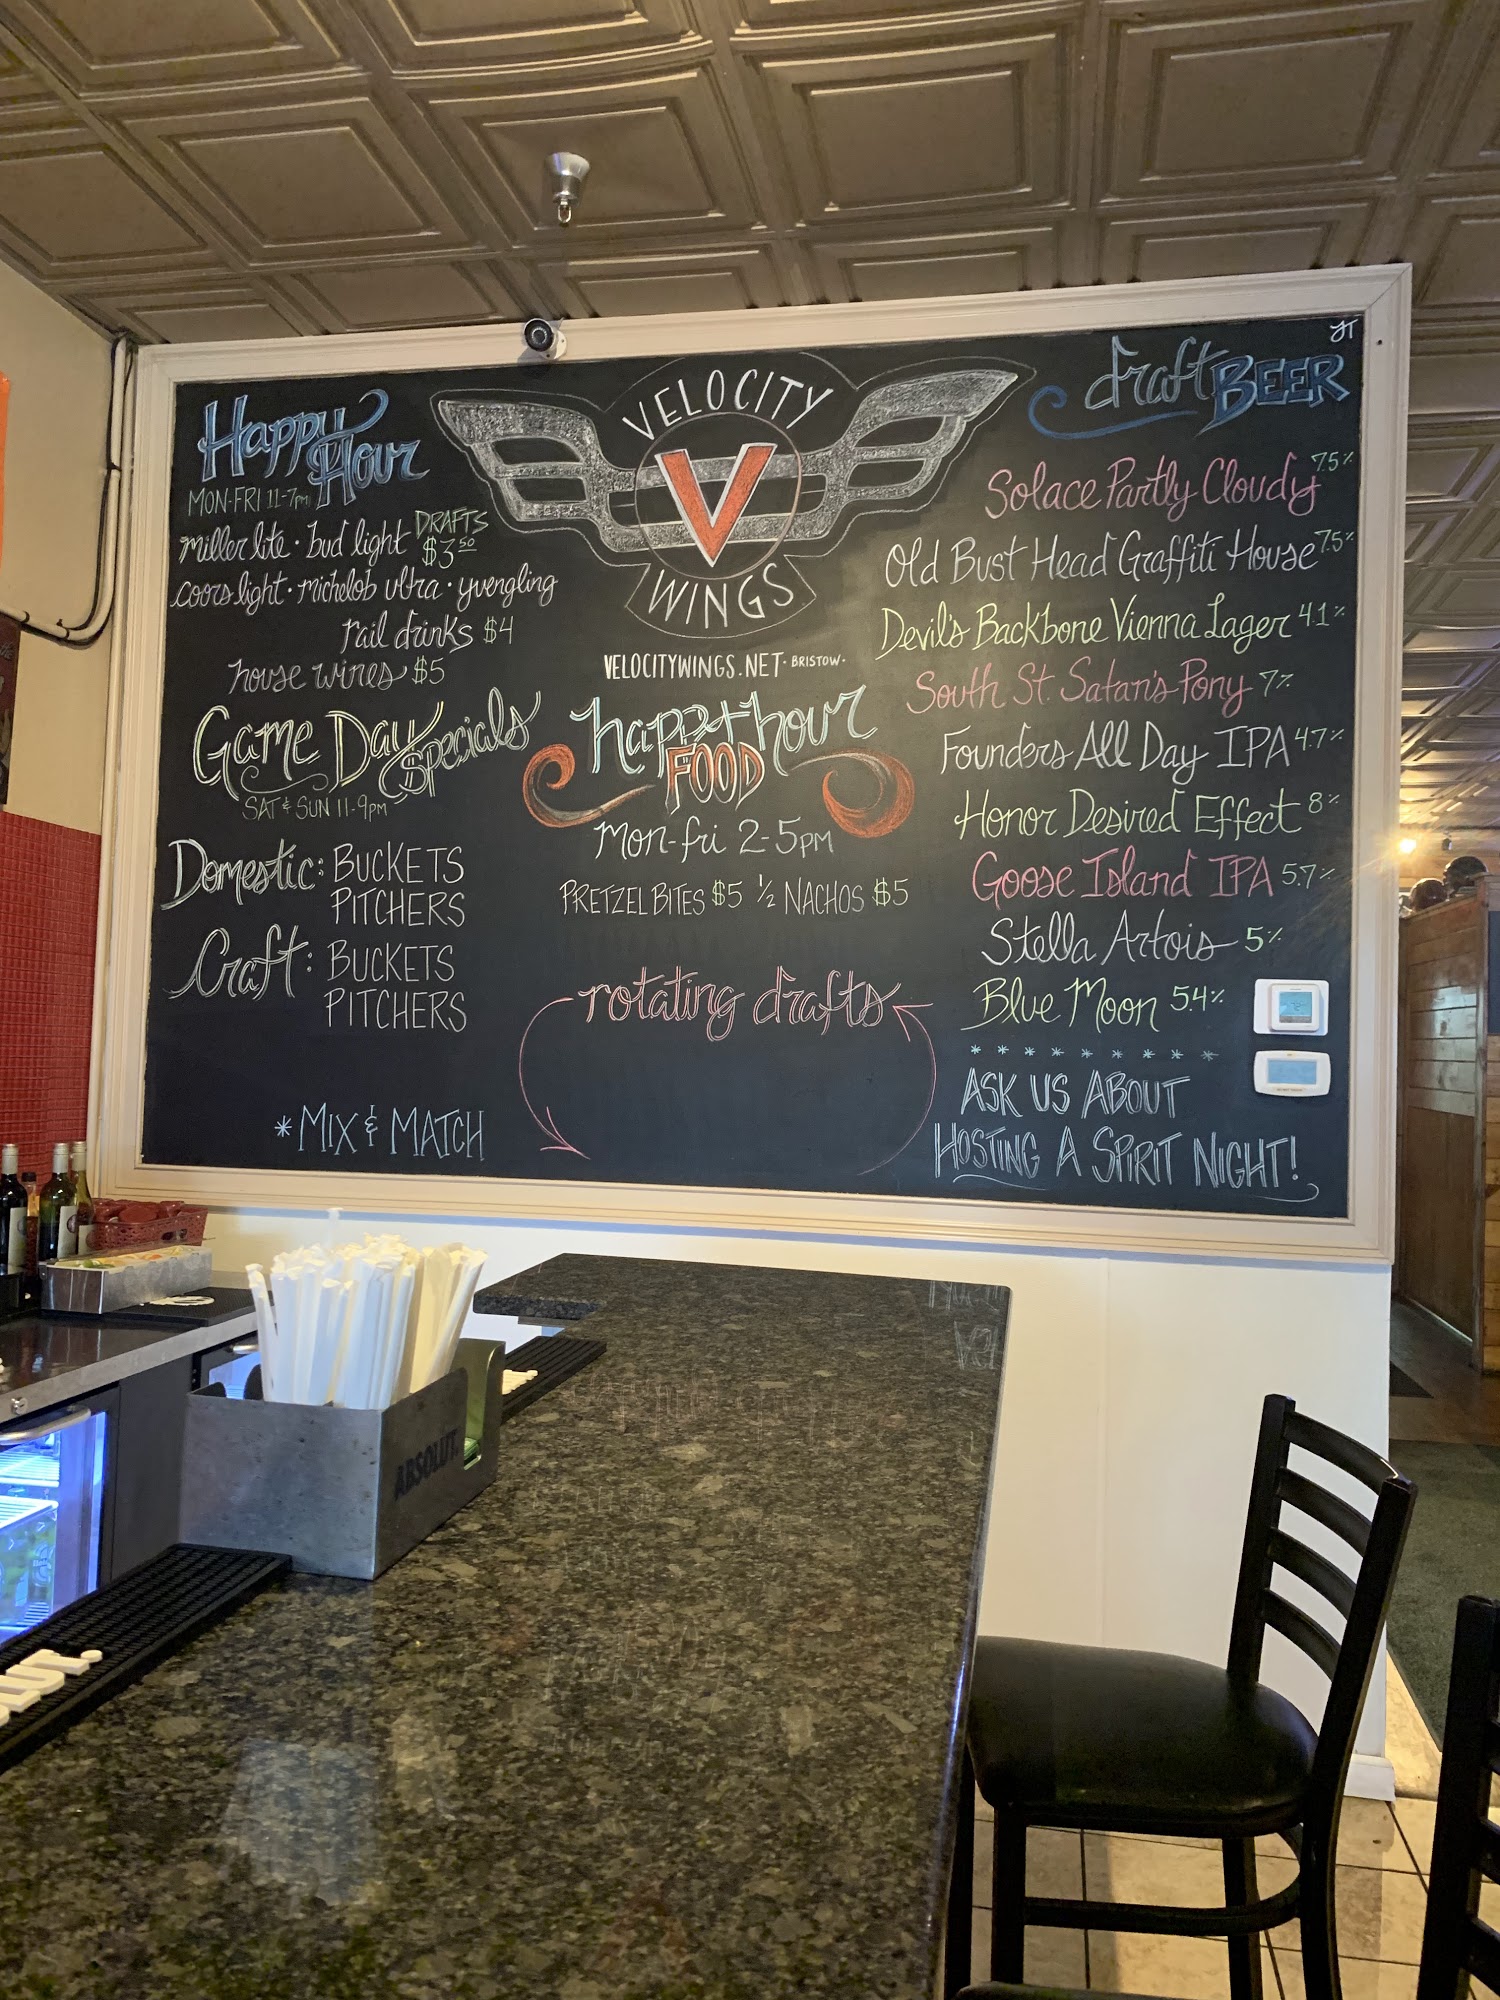 Happy Hour
MON-FRI 11-7pm
DRAFTS
miller lite · bud light $3.50
coors light · michelob ultra · yuengling
rail drinks $4
house wines $5
Game Day Specials
SAT & SUN 11-9pm
Domestic: BUCKETS
PITCHERS
Craft: BUCKETS
PITCHERS
*MIX & MATCH
VELOCITY
V
WINGS
VELOCITYWINGS.NET · BRISTOW ·
happy hour
FOOD
mon-fri 2-5pm
PRETZEL BITES $5 ½ NACHOS $5
rotating drafts
JT
draft BEER
Solace Partly Cloudy 7.5%
Old Bust Head Graffiti House 7.5%
Devil's Backbone Vienna Lager 4.1%
South St. Satan's Pony 7%
Founders All Day IPA 4.7%
Honor Desired Effect 8%
Goose Island IPA 5.7%
Stella Artois 5%
Blue Moon 5.4%
* * * * * * * * *
ASK US ABOUT
HOSTING A SPIRIT NIGHT!
ABSOLUT.